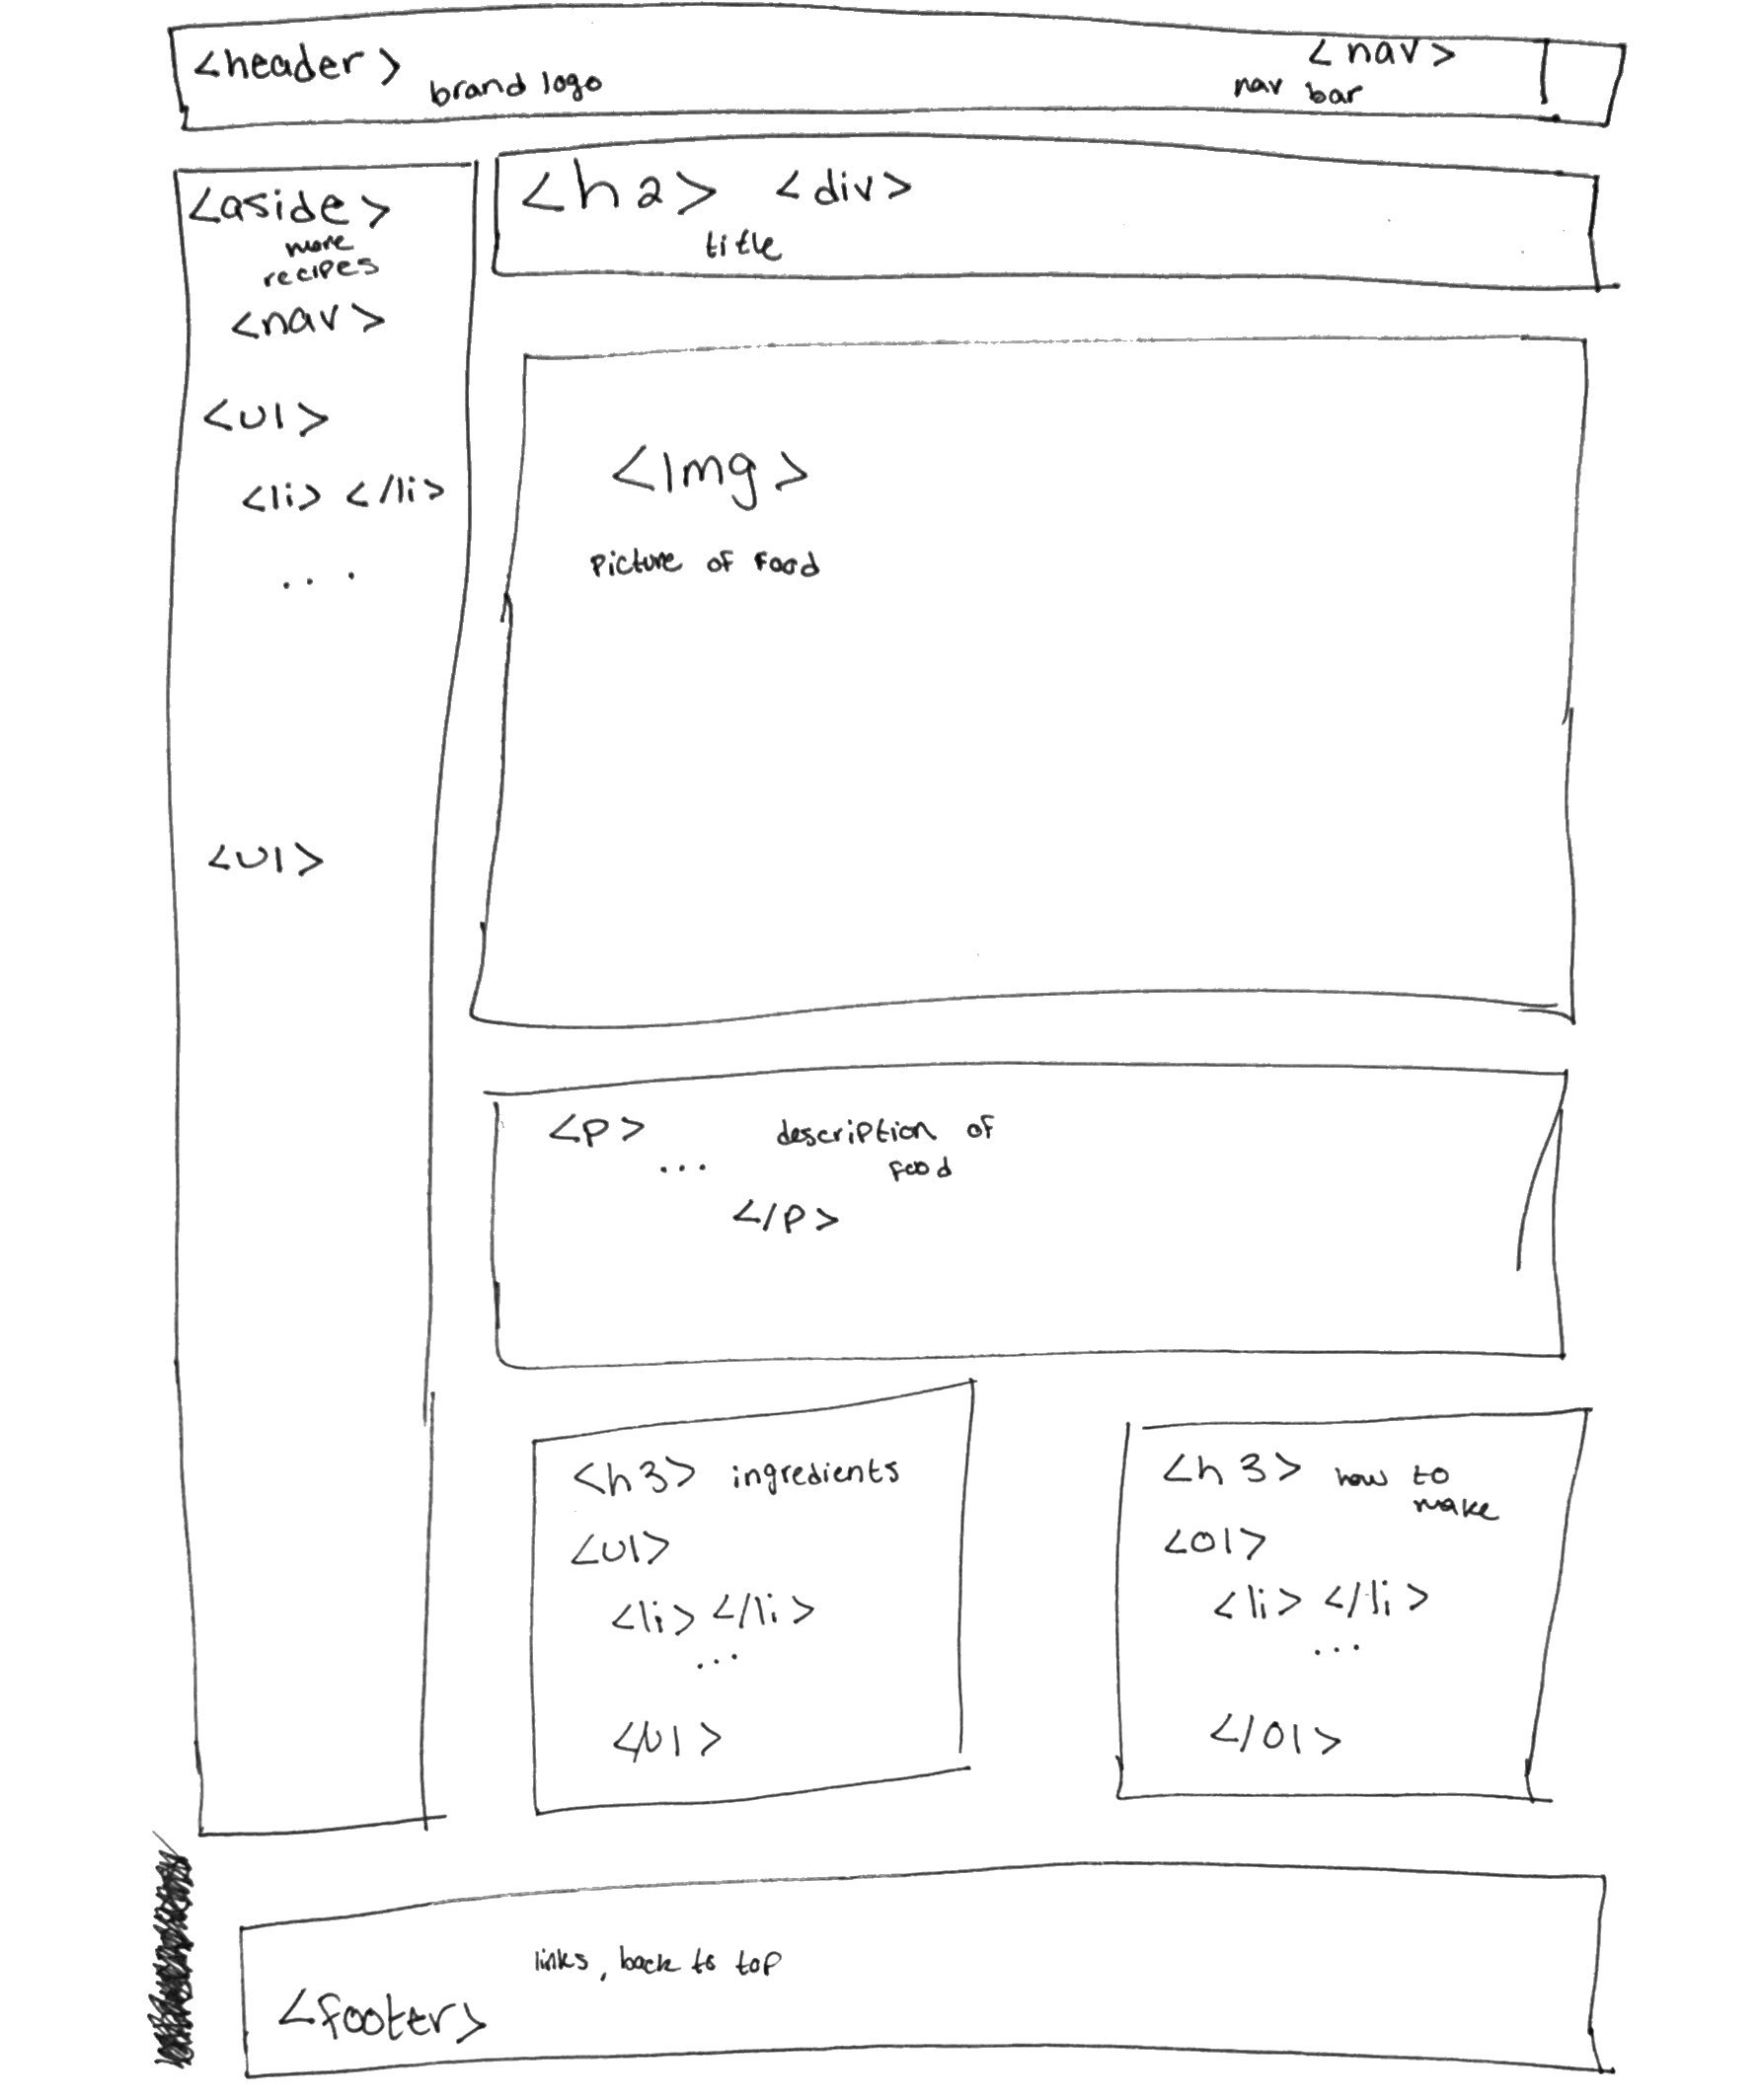 <header>
brand logo
<nav>
nav bar
<aside>
more
recipes
<nav>
<ul>
<li> </li>
...
<ul>
<h2> <div>
title
<Img>
picture of food
<p>
... description of
food
</p>
<h3> ingredients
<ul>
<li> </li>
...
</ul>
<h3> how to
make
<ol>
<li> </li>
...
</ol>
links, back to top
<footer>